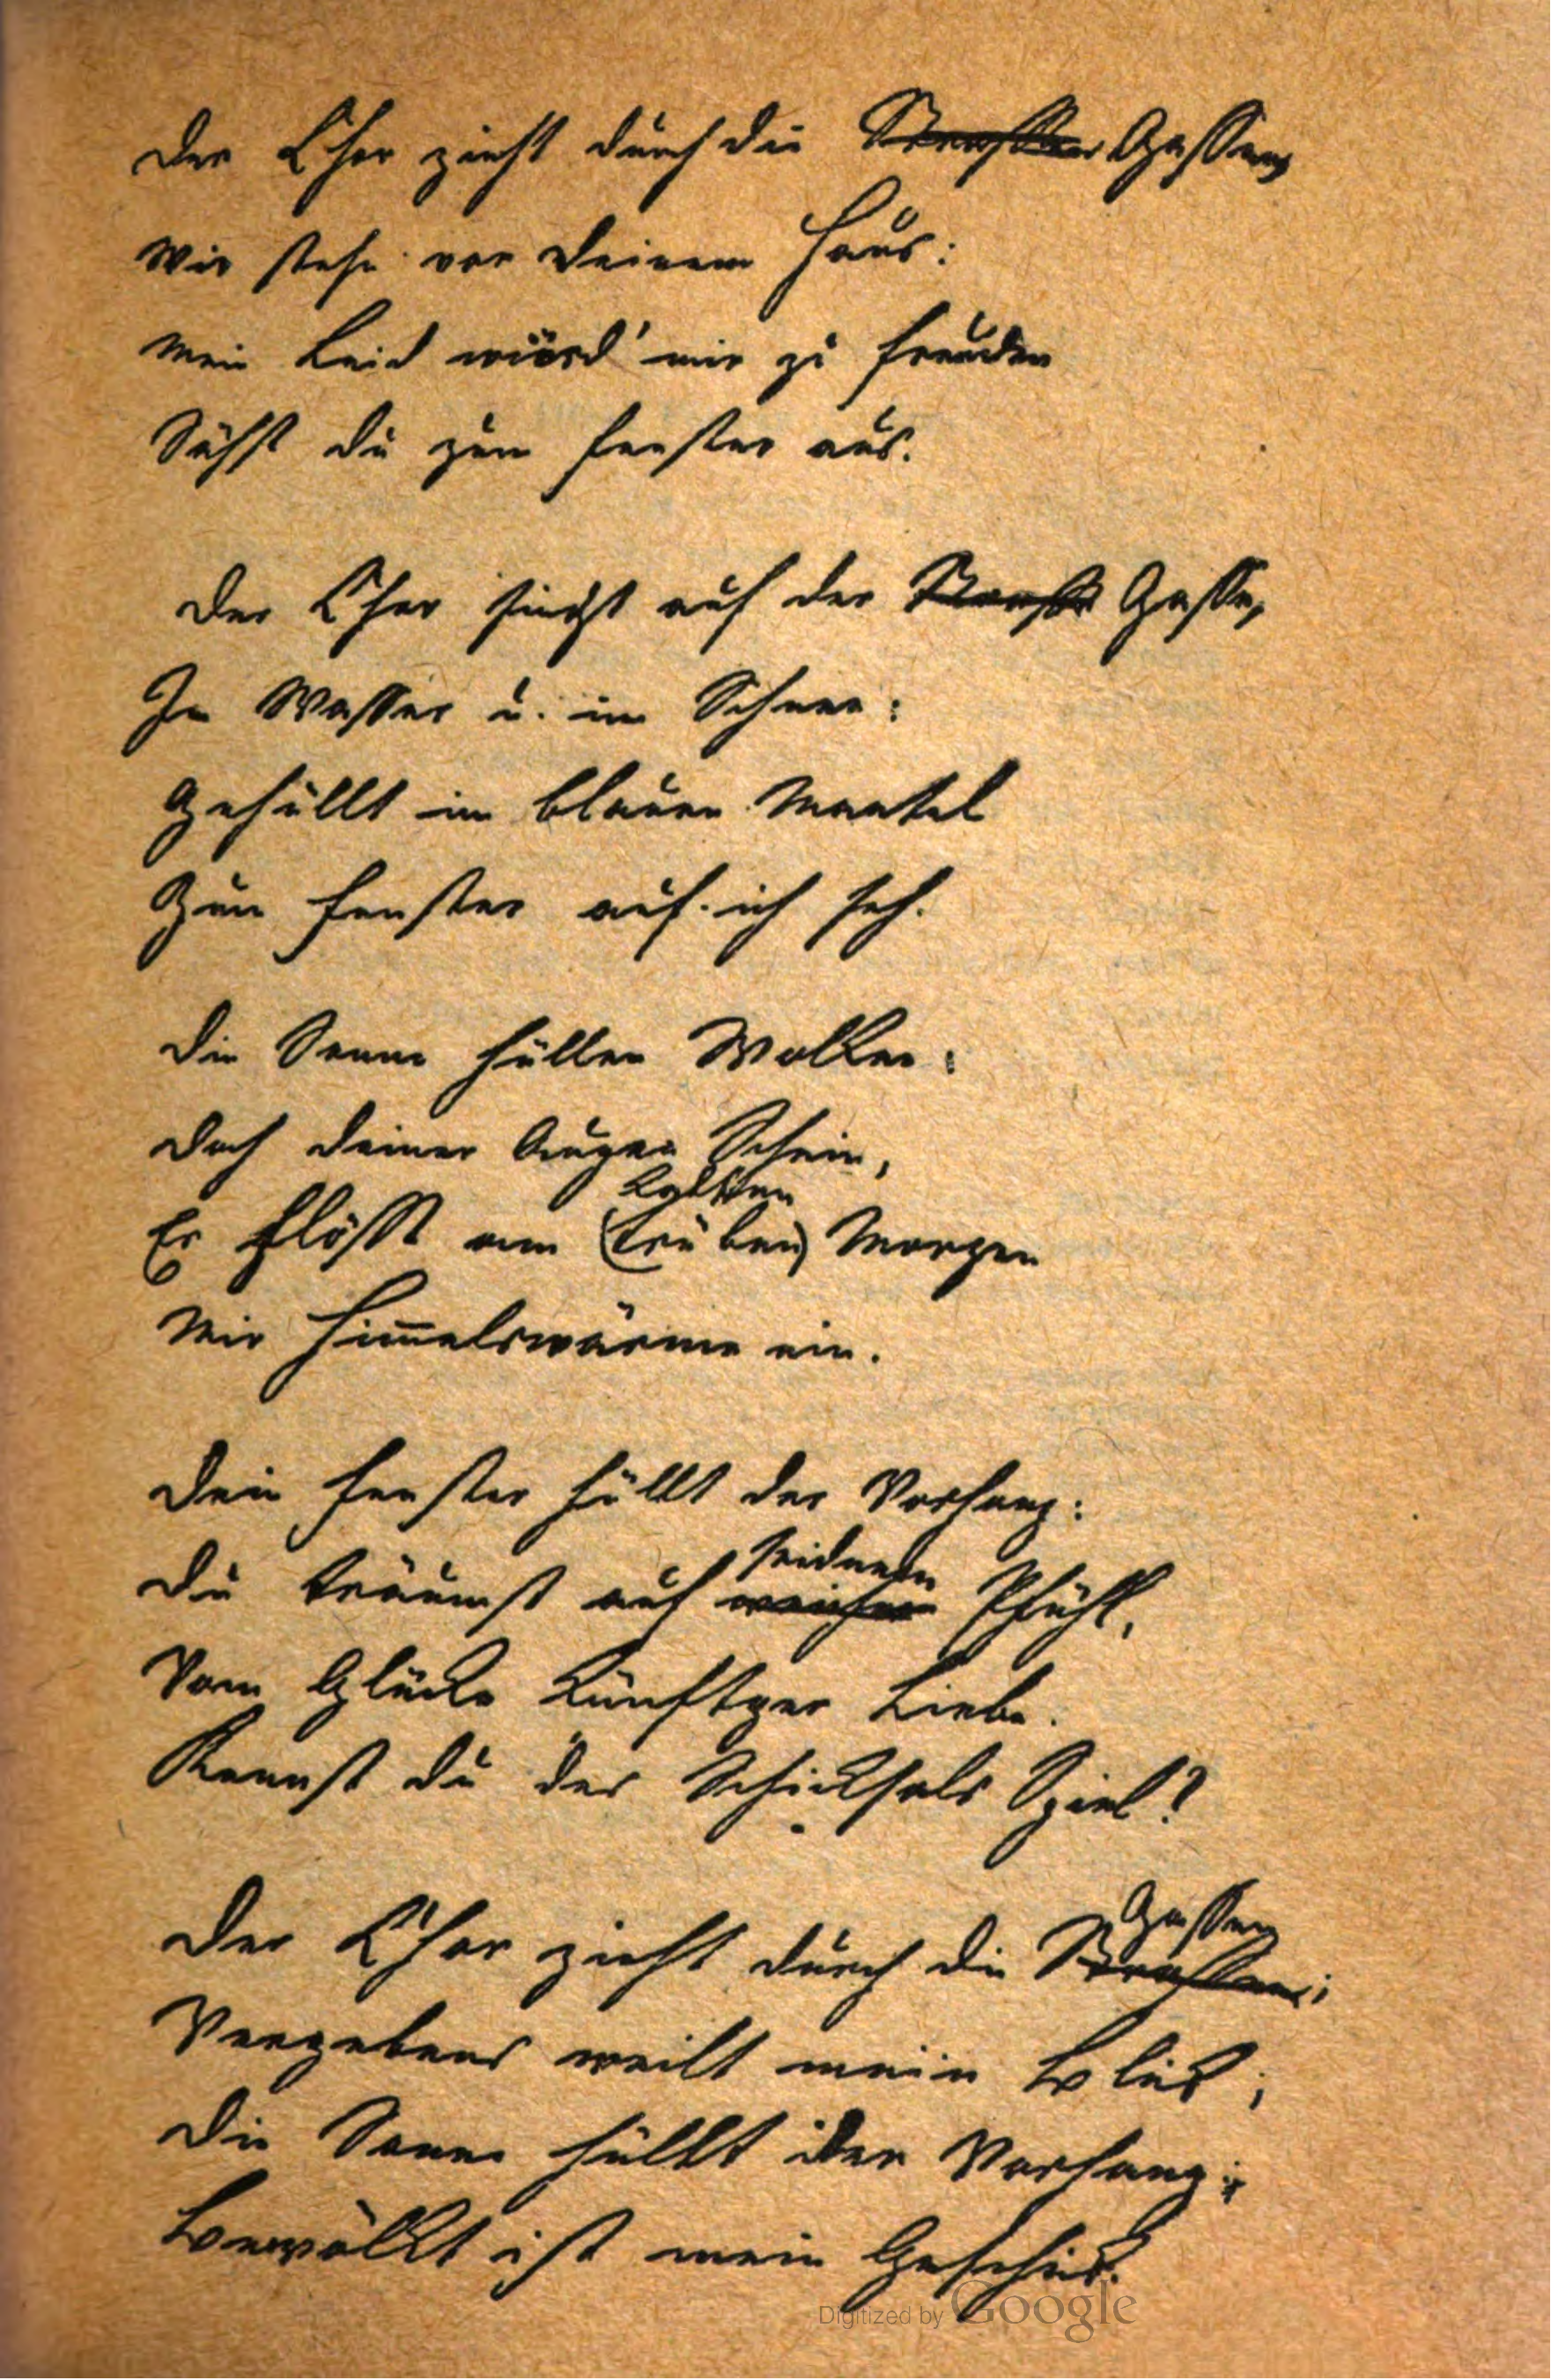 Der Chor zieht durch die Strassen Gassen,
Wir stehn vor deinem Haus:
Mein Leid würd' mir zu Freuden
Sähst du zum Fenster aus.
Der Chor singt auf der Strasse Gasse,
In Wasser u. im Schnee:
Gehüllt im blauen Mantel
Zum Fenster auf ich seh.
Die Sonne hüllen Wolken:
Doch deiner Augen Schein,
kalten
Er flösst am (trüben) Morgen
Mir Him̅elswärme ein.
Dein Fenster hüllt der Vorhang:
seidnem
Du träumst auf weichem Pfühl,
Vom Glücke künftger Liebe.
Kennst du des Schicksals Spiel?
Gassen
Der Chor zieht durch die Strassen;
Vergebens weilt mein Blick;
Die Sonne hüllt der Vorhang;
Bewölkt ist mein Geschick.
Digitized by Google